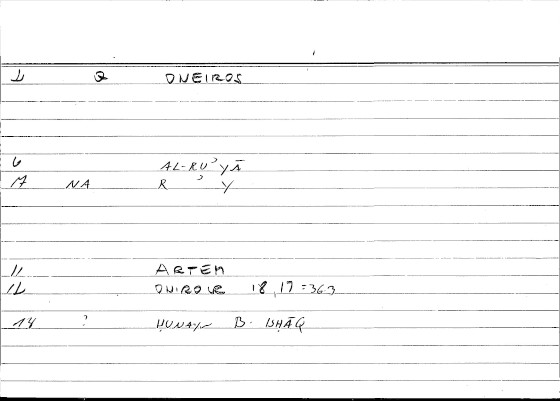 1 Q ONEIROS
6 AL-RUʾYĀ
17 NA R ʾ Y
11 ARTEM
12 ONIROCR 18,17=363
14 ? ḤUNAYN B. ISḤĀQ